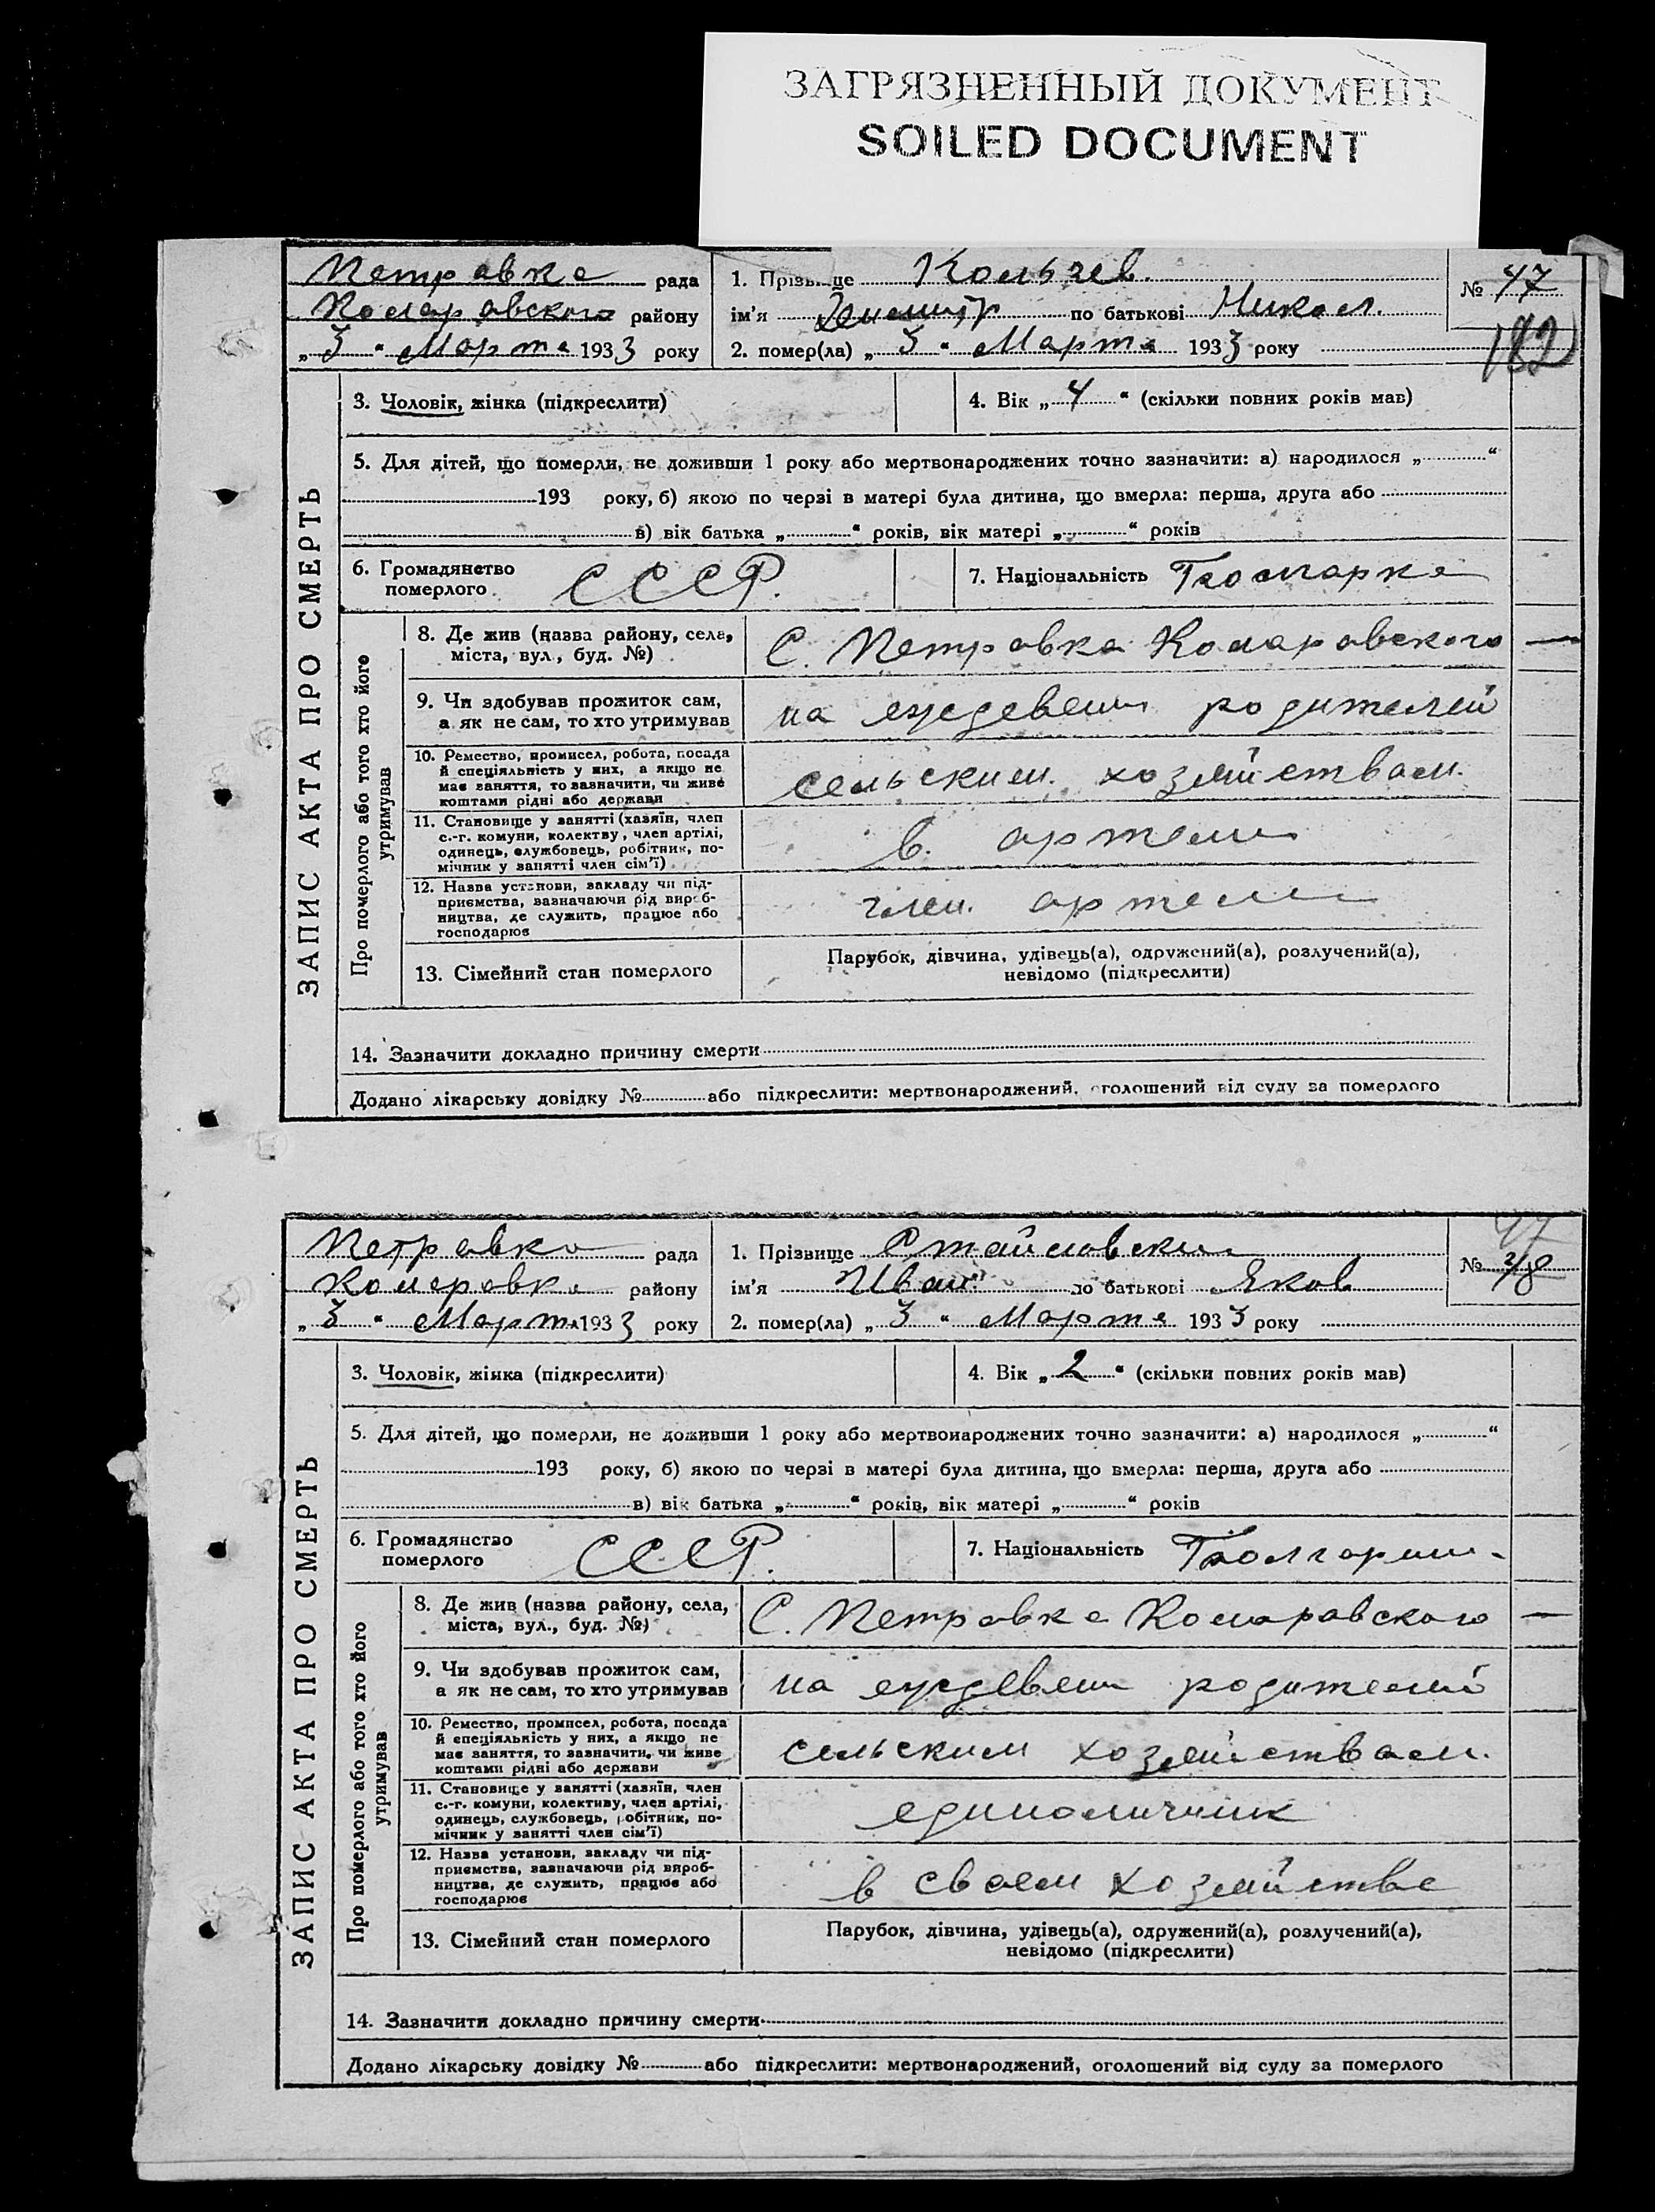 ЗАГРЯЗНЕННЫЙ ДОКУМЕНТ
SOILED DOCUMENT
Петравка рада
Комаравского района району
„3“ Марта 1933 року
1. Прізвище Кольчев.
№ 47
182
ім’я Дмитр по батькові Никол.
2. помер(ла) „3“ Марта 1933 року
ЗАПИС АКТА ПРО СМЕРТЬ
3. Чоловік, жінка (підкреслити)
4. Вік „4“ (скільки повних років мав)
5. Для дітей, що померли, не доживши 1 року або мертвонароджених точно зазначити: а) народилося „ “
193 року, б) якою по черзі в матері була дитина, що вмерла: перша, друга або
в) вік батька „ “ років, вік матері „ “ років
6. Громадянство
померлого
СССР.
7. Національність Болгарка
Про померлого або того хто його
утримував
8. Де жив (назва району, села,
міста, вул., буд. №)
С. Петравка Комаравского —
9. Чи здобував прожиток сам,
а як не сам, то хто утримував
на еждевени родителей
10. Ремество, промисел, робота, посада
й спеціяльність у них, а якщо не
має заняття, то зазначити, чи живе
коштами рідні або держави
сельским. хозяйствам.
11. Становище у занятті (хазяїн, член
с.-г. комуни, колектву, член артілі,
одинець, службовець, робітник, по-
мічник у занятті член сім’ї)
в. артели
12. Назва установи, закладу чи під-
приємства, зазначаючи рід вироб-
ництва, де служить, працює або
господарює
член. артели
13. Сімейний стан померлого
Парубок, дівчина, удівець(а), одружений(а), розлучений(а),
невідомо (підкреслити)
14. Зазначити докладно причину смерти
Додано лікарську довідку № або підкреслити: мертвонароджений, оголошений від суду за померлого
Петравка рада
Комаровка району
„3“ Марта 1933 року
1. Прізвище
47
№ 48
ім’я Иван по батькові Яков
2. помер(ла) „3“ Марта 1933 року
ЗАПИС АКТА ПРО СМЕРТЬ
3. Чоловік, жінка (підкреслити)
4. Вік „2“ (скільки повних років мав)
5. Для дітей, що померли, не доживши 1 року або мертвонароджених точно зазначити: а) народилося „ “
193 року, б) якою по черзі в матері була дитина, що вмерла: перша, друга або
в) вік батька „ “ років, вік матері „ “ років
6. Громадянство
померлого
СССР.
7. Національність Болгарин
Про померлого або того хто його
утримував
8. Де жив (назва району, села,
міста, вул., буд. №)
С. Петравка Комаравского —
9. Чи здобував прожиток сам,
а як не сам, то хто утримував
на еждевени родителей
10. Ремество, промисел, робота, посада
й спеціяльність у них, а якщо не
має заняття, то зазначити, чи живе
коштами рідні або держави
сельским хозяйствам.
11. Становище у занятті (хазяїн, член
с.-г. комуни, колективу, член артілі,
одинець, службовець, робітник, по-
мічник у занятті член сім’ї)
единоличник
12. Назва установи, закладу чи під-
приємства, зазначаючи рід вироб-
ництва, де служить, працює або
господарює
в своем хозяйстве
13. Сімейний стан померлого
Парубок, дівчина, удівець(а), одружений(а), розлучений(а),
невідомо (підкреслити)
14. Зазначити докладно причину смерти
Додано лікарську довідку № або підкреслити: мертвонароджений, оголошений від суду за померлого